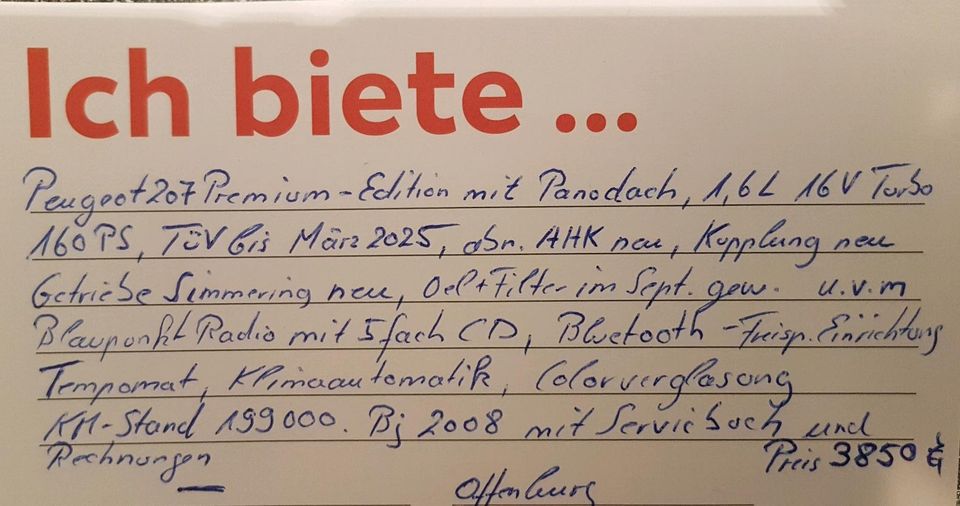 Ich biete ...
Peugeot 207 Premium-Edition mit Panodach, 1,6L 16V Turbo
160 PS, TüV bis März 2025, abn. AHK neu, Kupplung neu
Getriebe Simmering neu, Oel + Filter im Sept. gew. u.v.m
Blaupunkt Radio mit 5fach CD, Bluetooth - Freisp. Einrichtung
Tempomat, Klimaautomatik, Colorverglasung
KM-Stand 199000. Bj 2008 mit Servicbuch und
Rechnungen Preis 3850 €
Offenburg